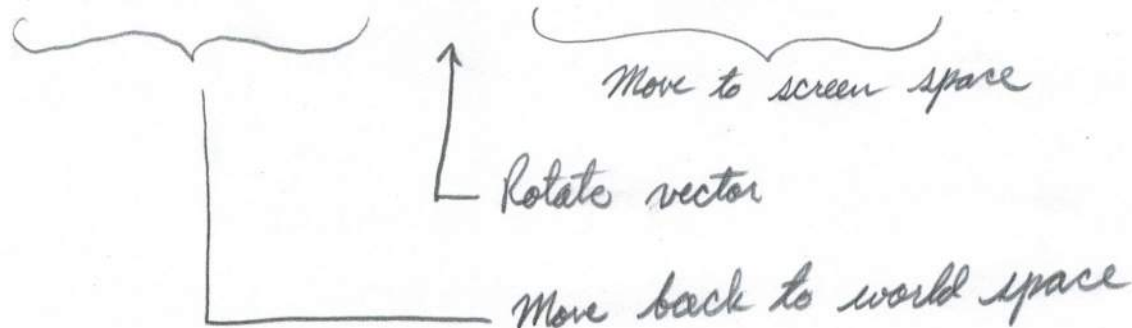 Move to screen space
Rotate vector
Move back to world space